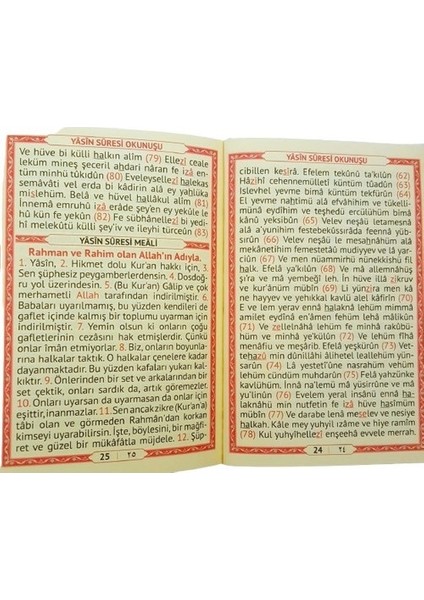 YÂSÎN SÛRESİ OKUNUŞU
Ve hüve bi külli halkın alîm (79) Ellezî ceale
leküm mineş şeceril ahdari nâran fe izâ en-
tüm minhü tûkıdûn (80) Eveleysellezî halekas
semâvâti vel erda bi kâdirin alâ ey yahlüka
mislehüm. Belâ ve hüvel hallâkul alîm (81)
İnnemâ emruhû izâ erâde şey'en ey yekûle le
hû kün fe yekûn (82) Fe sübhânellezî bi yedi-
hî melekûtü külli şey'iv ve ileyhi türceûn (83)
YÂSÎN SÛRESİ MEÂLİ
Rahman ve Rahim olan Allah'ın Adıyla.
1. Yâsîn, 2. Hikmet dolu Kur'an hakkı için, 3.
Sen şüphesiz peygamberlerdensin. 4. Dosdoğ-
ru yol üzerindesin. 5. (Bu Kur'an) Gâlip ve çok
merhametli Allah tarafından indirilmiştir. 6.
Babaları uyarılmamış, bu yüzden kendileri de
gaflet içinde kalmış bir toplumu uyarman için
indirilmiştir. 7. Yemin olsun ki onların çoğu
gafletlerinin cezâsını hak etmişlerdir. Çünkü
onlar îman etmiyorlar. 8. Biz, onların boyunla-
rına halkalar taktık. O halkalar çenelere kadar
dayanmaktadır. Bu yüzden kafaları yukarı kal-
kıktır. 9. Önlerinden bir set ve arkalarından bir
set çektik, onları sardık da, artık göremezler.
10. Onları uyarsan da uyarmasan da onlar için
eşittir, inanmazlar. 11. Sen ancak zikre (Kur'an'a)
tâbi olan ve görmeden Rahmân'dan korkan
kimseyi uyarabilirsin. İşte, böylesini, bir mağfi-
ret ve güzel bir mükâfâtla müjdele. 12. Şüp-
25 ٢٥
YÂSÎN SÛRESİ OKUNUŞU
cibillen kesîrâ. Efelem tekûnû ta'kılûn (62)
Hâzihî cehennemülletî küntüm tûadûn (63)
İslevhel yevme bimâ küntüm tekfürûn (64)
El yevme nahtimü alâ efvâhihim ve tükelli-
münâ eydîhim ve teşhedü ercülühüm bimâ
kânû yeksibûn (65) Velev neşâü letamesnâ
alâ a'yunihim festebekussırâta feennâ yüb-
sırûn (66) Velev neşâü le mesahnâhüm alâ
mekânetihim femestetâû mudıyyev ve lâ yar-
ciûn (67) Ve men nüammirhü nünekkishü fil
halk. Efelâ ya'kılûn (68) Ve mâ allemnâhüş
şi'ra ve mâ yembeğî leh. İn hüve illâ zikruv
ve kur'ânüm mübîn (69) Li yünzira men kâ
ne hayyev ve yehıkkal kavlü alel kâfirîn (70)
E ve lem yerav ennâ halaknâ lehüm mimmâ
amilet eydînâ en'âmen fehüm lehâ mâlikûn
(71) Ve zellelnâhâ lehüm fe minhâ rakûbü-
hüm ve minhâ ye'külûn (72) Ve lehüm fîhâ
menâfiu ve meşârib. Efelâ yeşkürûn (73) Vet-
tehazû min dûnillâhi âliheten leallehüm yün-
sarûn (74) Lâ yestetîûne nasrahüm vehüm
lehüm cündüm muhdarûn (75) Felâ yahzünke
kavlühüm. İnnâ na'lemü mâ yüsirrûne ve mâ
yu'linûn (76) Evelem yeral insânü ennâ ha-
laknâhü min nutfetin fe izâ hüve hasîmüm
mübîn (77) Ve darabe lenâ meselev ve nesiye
halkah. Kâle mey yuhyil ızâme ve hiye ramîm
(78) Kul yuhyîhellezî enşeehâ evvele merrah.
24 ٢٤